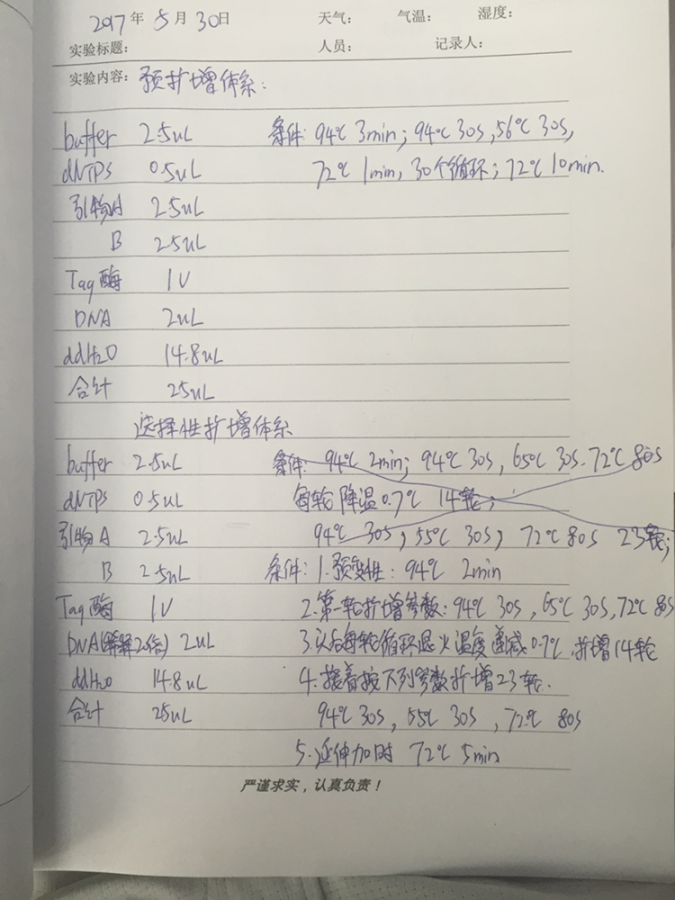 2017年 5月 30日 天气: 气温: 湿度:
实验标题: 人员: 记录人:
实验内容: 预扩增体系:
buffer 2.5uL 条件: 94℃ 3min; 94℃ 30s, 56℃ 30s,
dNTPs 0.5uL 72℃ 1min, 30个循环; 72℃ 10min.
引物A 2.5uL
B 2.5uL
Taq酶 1U
DNA 2uL
ddH2O 14.8uL
合计 25uL
选择性扩增体系
buffer 2.5uL 条件: 94℃ 2min; 94℃ 30s, 65℃ 30s. 72℃ 80s
dNTPs 0.5uL 每轮降温0.7℃ 14轮;
引物A 2.5uL 94℃ 30s, 55℃ 30s, 72℃ 80s 23轮;
B 2.5uL 条件: 1.预变性: 94℃ 2min
Taq酶 1U 2.第一轮扩增参数: 94℃ 30s, 65℃ 30s, 72℃ 80s
DNA(稀释20倍) 2uL 3.以后每轮循环退火温度递减0.7℃, 扩增14轮
ddH2O 14.8uL 4.接着按下列参数扩增23轮.
合计 25uL 94℃ 30s, 55℃ 30s, 72℃ 80s
5.延伸加时 72℃ 5min
严谨求实，认真负责！